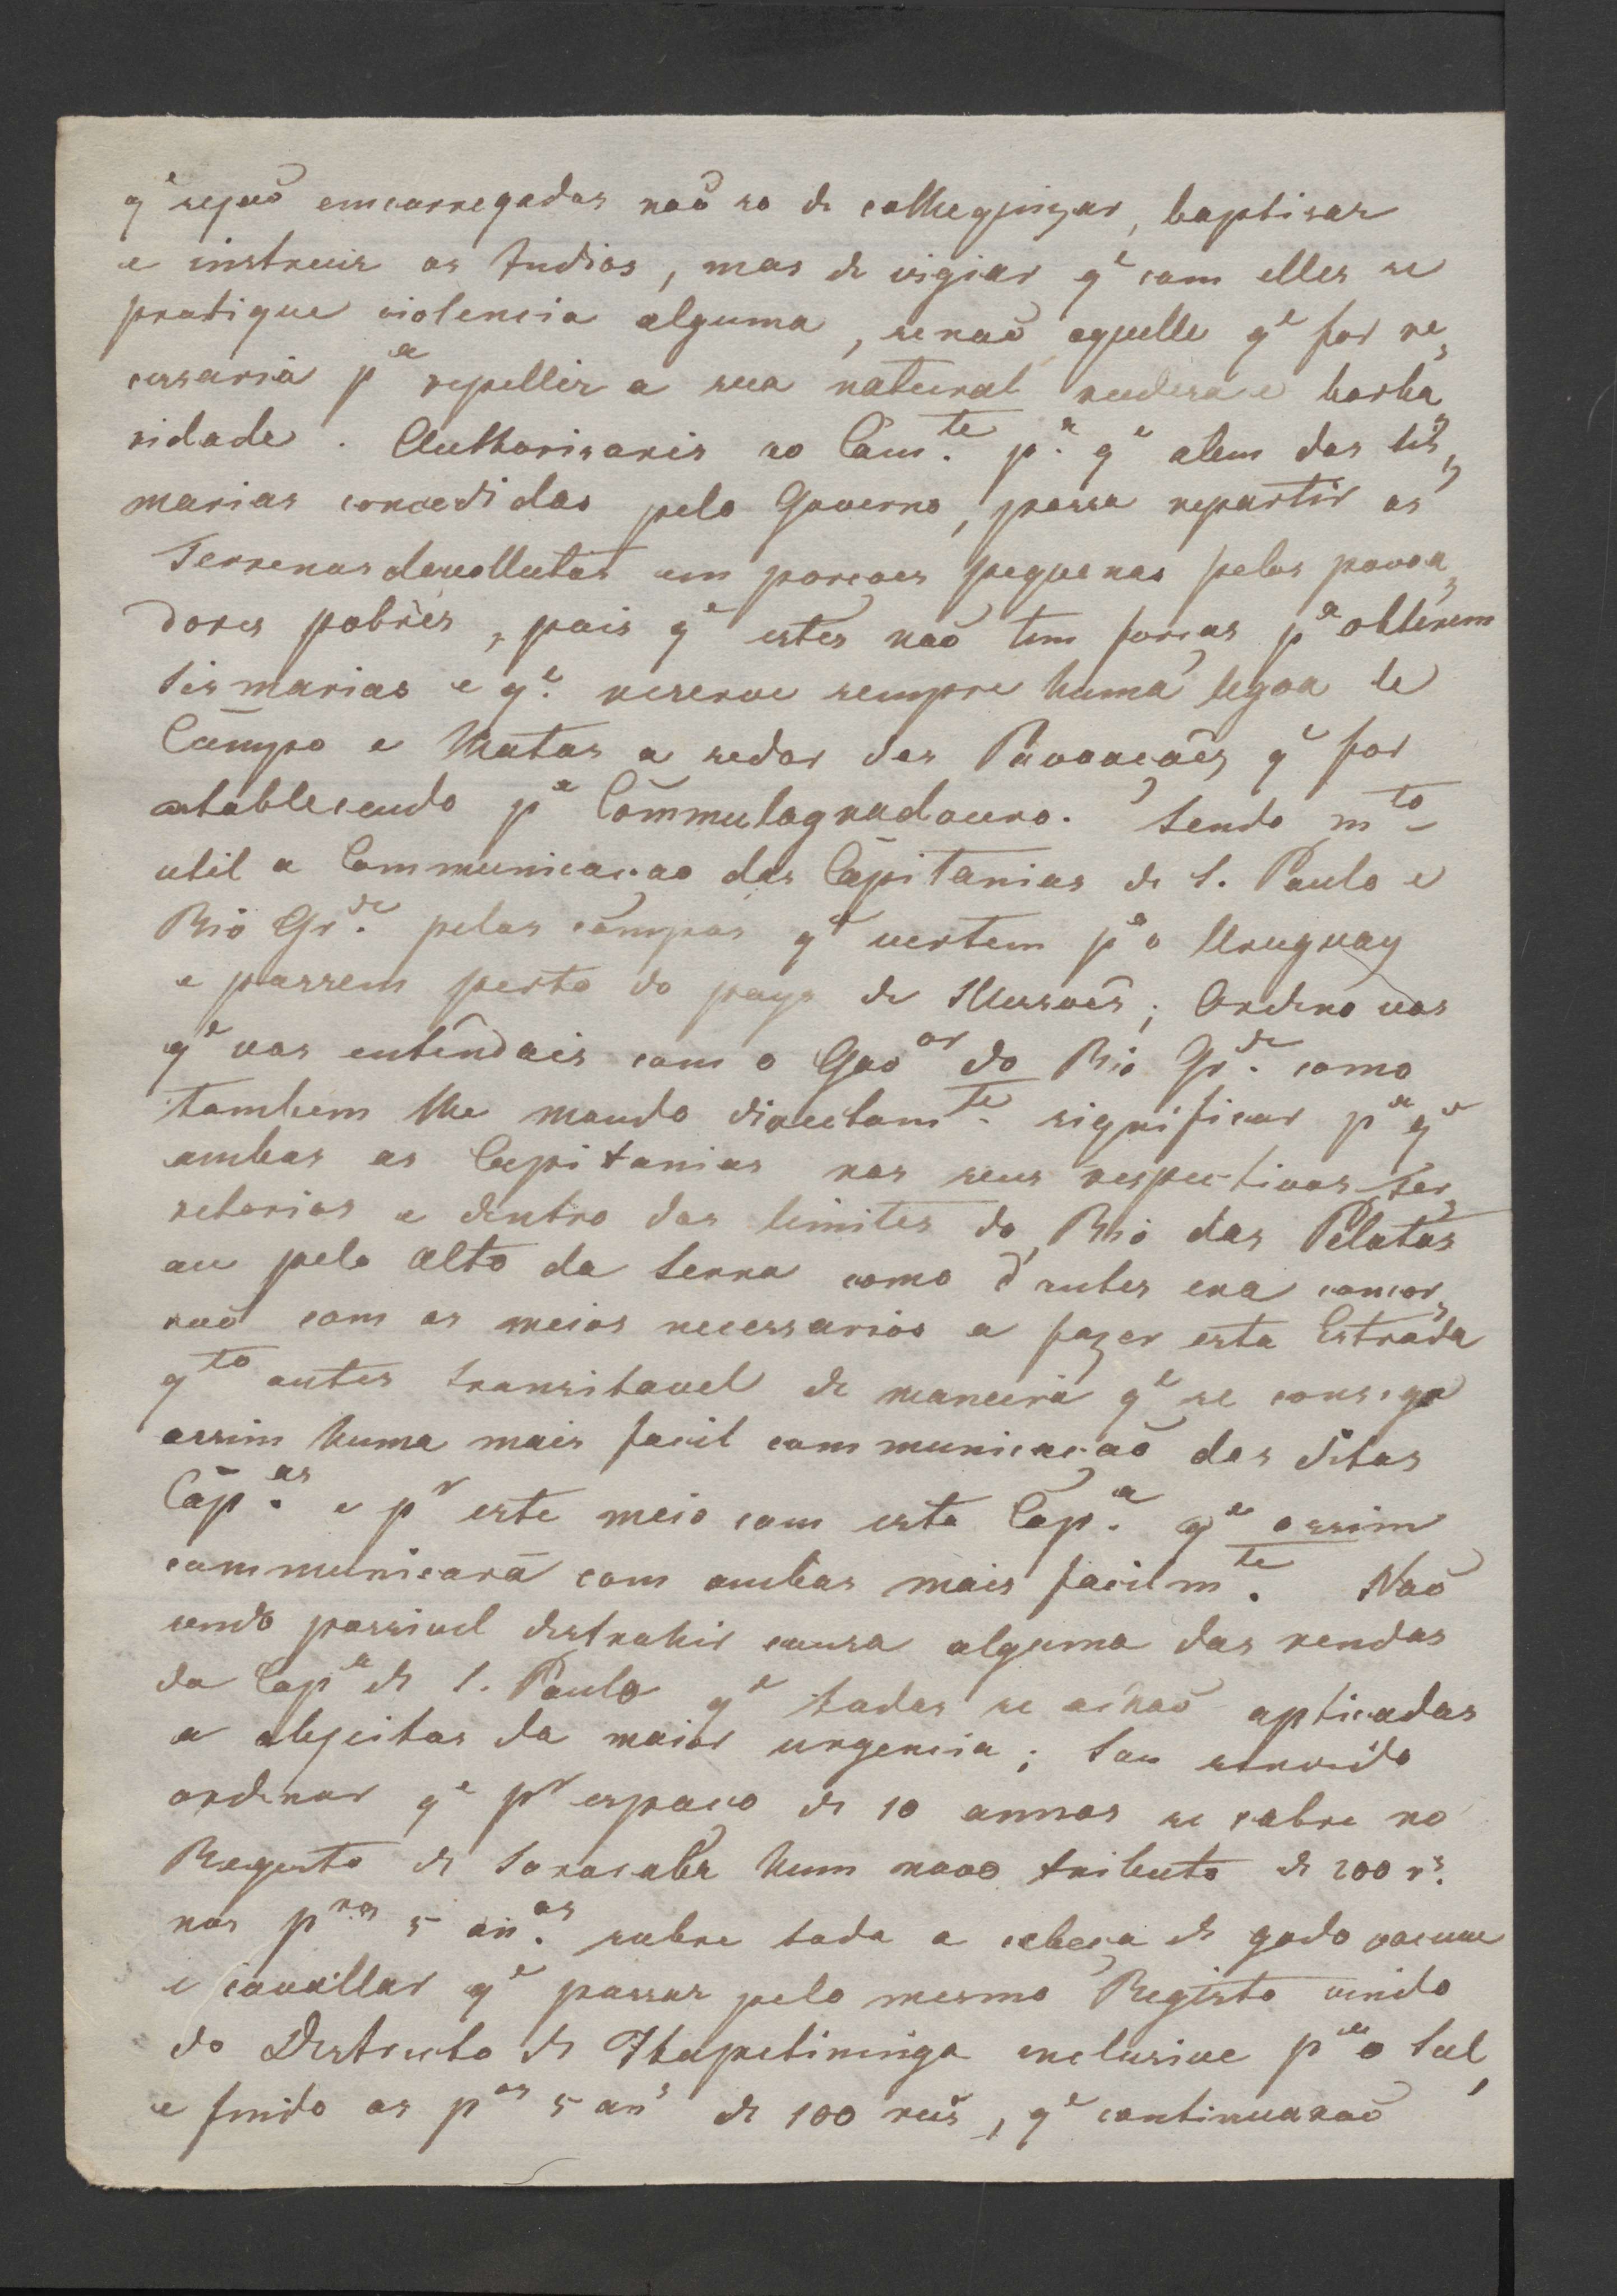 q^e sejaõ emcarregados naõ so de cathegquizar, baptisar
e instruir os Indios, mas de vigiar q^e com elles se
pratique violencia alguma, senaõ aquelle q^e for ne,
cessaria p^a repellir a sua natural rudesa e barba,
ridade. Authorisareis ao Com.^te p.^a q^e alem das sis,
marias concedidas pelo Governo, possa repartir os
Terrenos devollutos em porçoes pequenas pelos povoa,
dores pobres, pois q^e estes naõ tem forças p^a obterem
Sismarias e q.^e reserve sempre huma legoa de
Campo e Matas a redor das Povoaçoẽs q^e for
establecendo p^a Commulogradouro. Sendo m^to
util a Communicaçao das Capitanias de S. Paulo e
Rio Gr.^de pelos campos q^e vertem p^a o Uruguay
e passem perto do pays de Missoẽs; Ordeno vos
q^e vos entendais com o Gov^or do Rio Gr.^de como
tambem lhe mando directam^te significar p^a q^e
ambas as Capitanias nos seus respectivos ter,
retorios e dentro dos limites do Rio das Pelotas
ou pelo alto da Serra como d'antes era concor,
raõ com os meios necessarios a fazer esta Estrada
q^to antes transitavel de maneira q^e se consiga
assim huma mais facil communicaçaõ das ditas
Cap.^as e p^r este meio com esta Cap.^a q^e assim
communicará com ambas mais facilm^te. Naõ
sendo possivel distrahir cousa alguma das rendas
da Cap^a de S. Paulo q^e todas se achaõ aplicadas
a objeitos da maior urgencia; Sou servido
ordenar q^e p^r espaço de 10 annos se cobre no
Regesto de Sorocaba hum novo tributo de 200 r^s.
nos p^ros 5 an.^os sobre toda a cabeça de gado vacum
e cavallar q^e passar pelo mesmo Registo vindo
do Destricto de Itapetininga enclusive p^a o Sul,
e findo os p^os 5 an^s de 100 reis, q^e continuaraõ